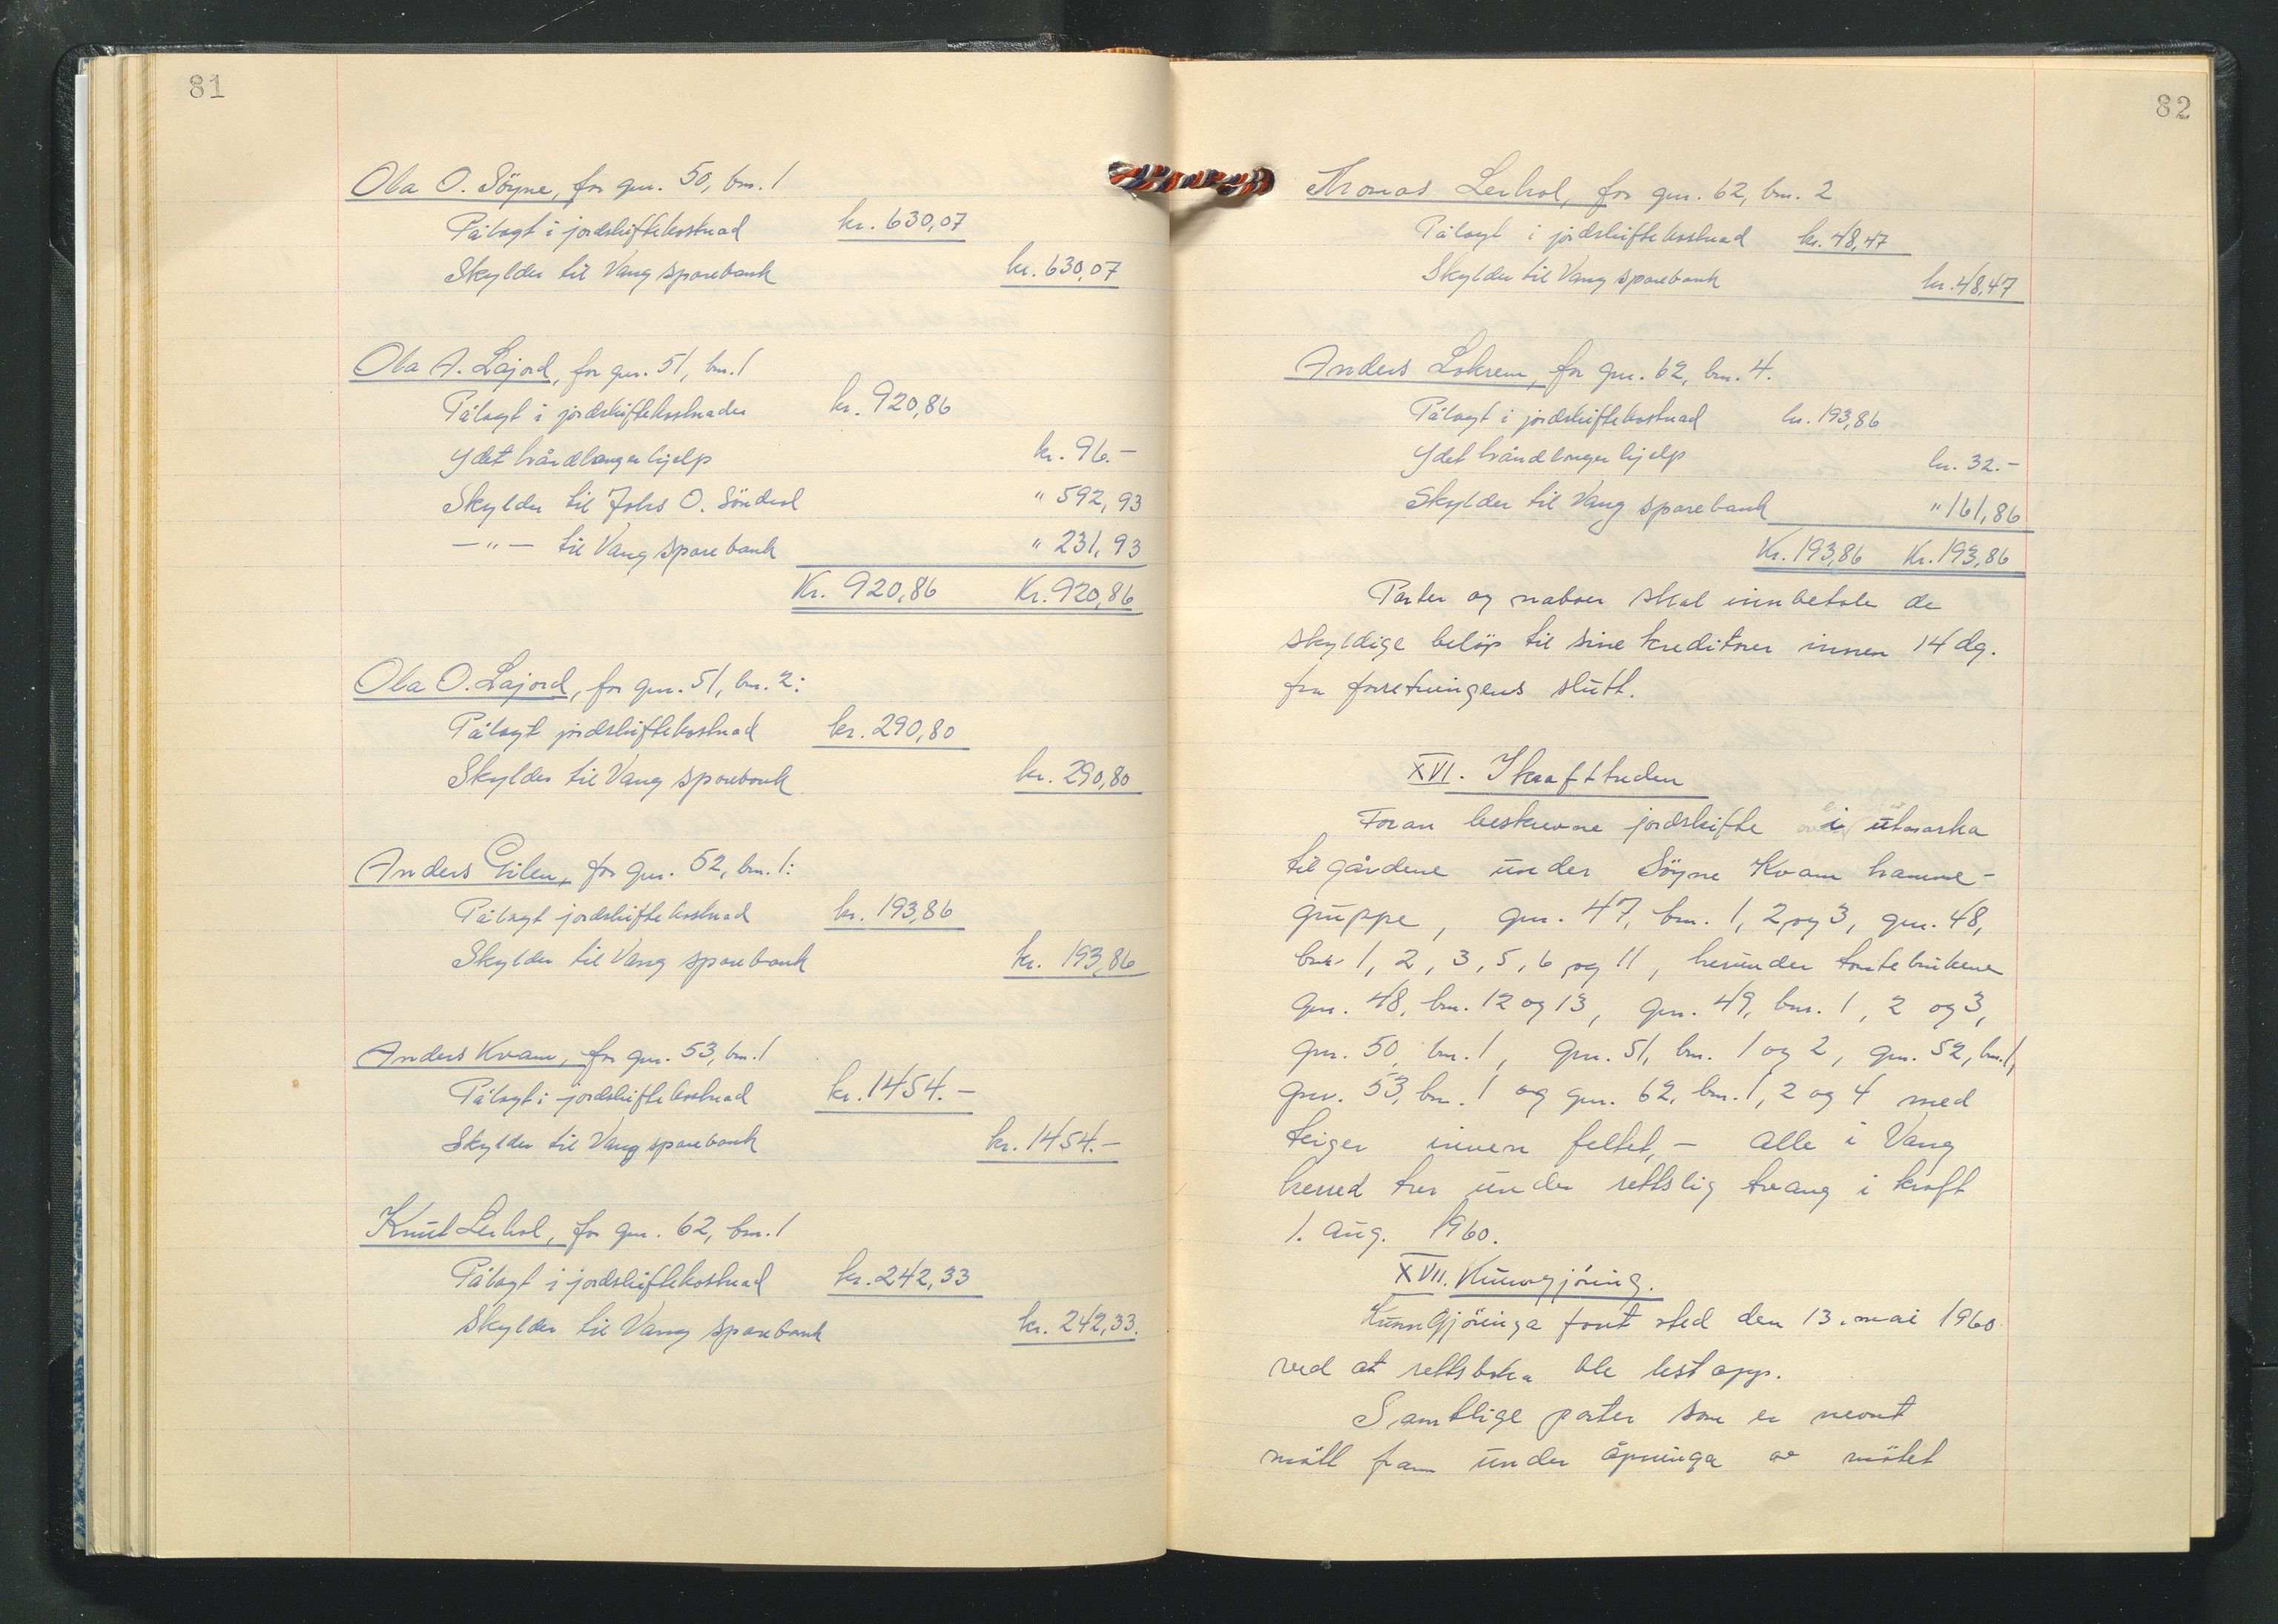 81
Ola O. Söyne, for gnr. 50, bnr. 1
Pålagt i jordskiftekostnad kr. 630,07
Skylder til Vang sparebank kr. 630,07
Ola A. Lajord, for gnr. 51, bnr. 1
Pålagt i jordskiftekostnader kr. 920,86
Ydet håndlangerhjelp kr. 96.-
Skylder til Johs O. Sönderl " 592,93
— " — til Vang sparebank " 231,93
Kr. 920,86 Kr. 920,86
Ola O. Lajord, for gnr. 51, bnr. 2:
Pålagt jordskiftekostnad kr. 290,80
Skylder til Vang sparebank kr. 290,80
Anders Eilen, for gnr. 52, bnr. 1:
Pålagt jordskiftekostnad kr. 193,86
Skylder til Vang sparebank kr. 193,86
Anders Kvam, for gnr. 53, bnr. 1
Pålagt i jordskiftekostnad kr. 1454.-
Skylder til Vang sparebank kr. 1454.-
Knut Lerhol, for gnr. 62, bnr. 1
Pålagt i jordskiftekostnad kr. 242,33
Skylder til Vang sparebank kr. 242,33.
82
Thomas Lerhol, for gnr. 62, bnr. 2
Pålagt i jordskiftekostnad kr. 48,47
Skylder til Vang sparebank kr. 48,47
Anders Lokrem, for gnr. 62, bnr. 4.
Pålagt i jordskiftekostnad kr. 193,86
Ydet håndlangerhjelp kr. 32.-
Skylder til Vang sparebank " 161,86
Kr. 193,86 Kr. 193,86
Parter og naboer skal innbetale de
skyldige beløp til sine kreditorer innen 14 dg.
fra forretningens slutt.
XVI. Ikrafttreden
Foran beskrevne jordskifte i utmarka
til gårdene under Söyne Kvam hamne-
gruppe, gnr. 47, bnr. 1, 2 og 3, gnr. 48,
bnr. 1, 2, 3, 5, 6 og 11, herunder tomtebrukene
gnr. 48, bnr. 12 og 13, gnr. 49, bnr. 1, 2 og 3,
gnr. 50, bnr. 1, gnr. 51, bnr. 1 og 2, gnr. 52, bnr. 1,
gnr. 53, bnr. 1 og gnr. 62, bnr. 1, 2 og 4 med
teiger innen feltet, - alle i Vang
herred trer under rettslig tvang i kraft
1. aug. 1960.
XVII. Kunngjöring.
Kunngjöringa fant sted den 13. mai 1960
ved at rettsboka ble lest opp.
Samtlige parter som er nevnt
mött fram under åpninga av mötet